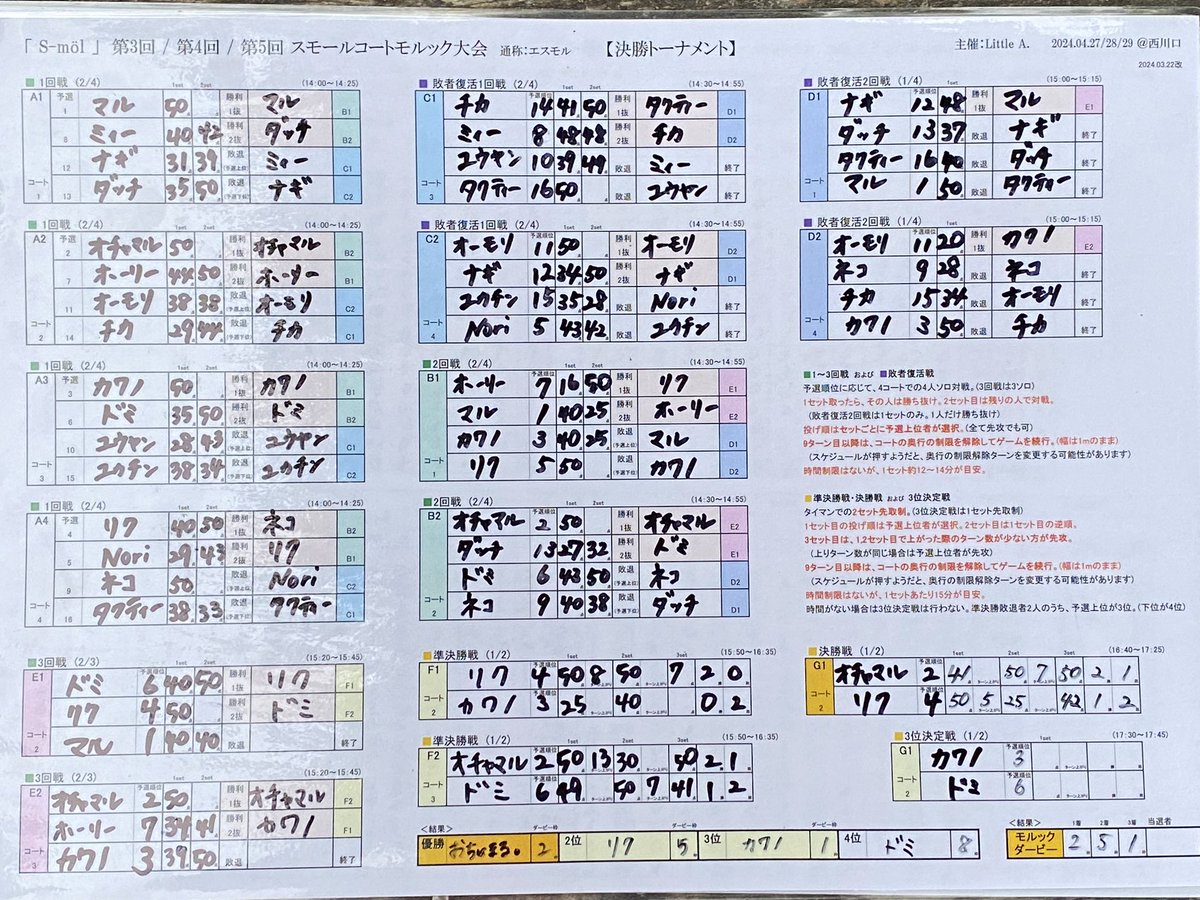 「 S-möl 」 第3回 / 第4回 / 第5回 スモールコートモルック大会 通称:エスモル 【決勝トーナメント】 主催:Little A. 2024.04.27/28/29 @西川口
2024.03.22改
■1回戦 (2/4) (14:00~14:25)
A1 予選 1set 2set
1 マル 50 勝利 1抜 マル B1
8 ミィー 40 42 勝利 2抜 ダッチ B2
12 ナギ 31 39 敗退 (予選上位) ミィー C1
コート1 13 ダッチ 35 50 敗退 (予選下位) ナギ C2
■1回戦 (2/4) (14:00~14:25)
A2 予選 1set 2set
2 オチャマル 50 勝利 1抜 オチャマル B2
7 ホーリー 44 50 勝利 2抜 ホーリー B1
11 オーモリ 38 38 敗退 (予選上位) オーモリ C2
コート2 14 チカ 29 44 敗退 (予選下位) チカ C1
■1回戦 (2/4) (14:00~14:25)
A3 予選 1set 2set
3 カワノ 50 勝利 1抜 カワノ B1
6 ドミ 35 50 勝利 2抜 ドミ B2
10 ユウヤン 28 43 敗退 (予選上位) ユウヤン C1
コート3 15 ユウチン 38 34 敗退 (予選下位) ユウチン C2
■1回戦 (2/4) (14:00~14:25)
A4 予選 1set 2set
4 リク 40 50 勝利 1抜 ネコ B2
5 Nori 29 43 勝利 2抜 リク B1
9 ネコ 50 敗退 (予選上位) Nori C2
コート4 16 タクティー 38 33 敗退 (予選下位) タクティー C1
■3回戦 (2/3) (15:20~15:45)
E1 予選順位 1set 2set
ドミ 6 40 50 勝利 1抜 リク F1
リク 4 50 勝利 2抜 ドミ F2
コート2 マル 1 40 40 敗退 終了
■3回戦 (2/3) (15:20~15:45)
E2 予選順位 1set 2set
オチャマル 2 50 勝利 1抜 オチャマル F2
ホーリー 7 34 41 勝利 2抜 カワノ F1
コート3 カワノ 3 39 50 敗退 終了
■敗者復活1回戦 (2/4) (14:30~14:55)
C1 予選順位 1set 2set
チカ 14 41 50 勝利 1抜 タクティー D2
ミィー 8 48 48 勝利 2抜 チカ D2
ユウヤン 10 39 49 敗退 ミィー 終了
コート3 タクティー 16 50 敗退 ユウヤン 終了
■敗者復活1回戦 (2/4) (14:30~14:55)
C2 予選順位 1set 2set
オーモリ 11 50 勝利 1抜 オーモリ D2
ナギ 12 34 50 勝利 2抜 ナギ D1
ユウチン 15 35 28 敗退 Nori 終了
コート4 Nori 5 43 42 敗退 ユウチン 終了
■2回戦 (2/4) (14:30~14:55)
B1 予選順位 1set 2set
ホーリー 7 16 50 勝利 1抜 リク E1
マル 1 40 25 勝利 2抜 ホーリー E2
カワノ 3 40 25 敗退 (予選上位) マル D1
コート1 リク 5 50 敗退 (予選下位) カワノ D2
■2回戦 (2/4) (14:30~14:55)
B2 予選順位 1set 2set
オチャマル 2 50 勝利 1抜 オチャマル E2
ダッチ 13 27 32 勝利 2抜 ドミ E1
ドミ 6 43 50 敗退 (予選上位) ネコ D2
コート2 ネコ 9 40 38 敗退 (予選下位) ダッチ D1
■準決勝戦 (1/2) (15:50~16:35)
F1 予選順位 1set 2set 3set
リク 4 50 8 50 7 2 0
コート2 カワノ 3 25 40 0 2
■準決勝戦 (1/2) (15:50~16:35)
F2 予選順位 1set 2set 3set
オチャマル 2 50 13 30 50 2 1
コート3 ドミ 6 49 50 7 41 1 2
<結果> ダービー枠 ダービー枠 ダービー枠 ダービー枠
優勝 おちゃまる。 2 2位 リク 5 3位 カワノ 1 4位 ドミ 8
■敗者復活2回戦 (1/4) (15:00~15:15)
D1 予選順位 1set
ナギ 12 48 勝利 1抜 マル E1
ダッチ 13 37 敗退 ナギ 終了
タクティー 16 40 敗退 ダッチ 終了
コート1 マル 1 50 敗退 タクティー 終了
■敗者復活2回戦 (1/4) (15:00~15:15)
D2 予選順位 1set
オーモリ 11 20 勝利 1抜 カワノ E2
ネコ 9 28 敗退 ネコ 終了
チカ 15 34 敗退 オーモリ 終了
コート4 カワノ 3 50 敗退 チカ 終了
■1~3回戦 および ■敗者復活戦
予選順位に応じて、4コートでの4人ソロ対戦。(3回戦は3ソロ)
1セット取ったら、その人は勝ち抜け。2セット目は残りの人で対戦。
(敗者復活2回戦は1セットのみ。1人だけ勝ち抜け)
投げ順はセットごとに予選上位者が選択。(全て先攻でも可)
9ターン目以降は、コートの奥行の制限を解除してゲームを続行。(幅は1mのまま)
(スケジュールが押すようだと、奥行の制限解除ターンを変更する可能性があります)
時間制限はないが、1セット約12~14分が目安。
■準決勝戦・決勝戦 および 3位決定戦
タイマンでの2セット先取制。(3位決定戦は1セット先取制)
1セット目の投げ順は予選上位者が選択。2セット目は1セット目の逆順。
3セット目は、1,2セット目で上がった際のターン数が少ない方が先攻。
(上りターン数が同じ場合は予選上位者が先攻)
9ターン目以降は、コートの奥行の制限を解除してゲームを続行。(幅は1mのまま)
(スケジュールが押すようだと、奥行の制限解除ターンを変更する可能性があります)
時間制限はないが、1セットあたり15分が目安。
時間がない場合は3位決定戦は行わない。準決勝敗退者2人のうち、予選上位が3位。(下位が4位)
■決勝戦 (1/2) (16:40~17:25)
G1 予選順位 1set 2set 3set
オチャマル 2 41 50 7 50 2 1
コート2 リク 4 50 5 25 42 1 2
■3位決定戦 (1/2) (17:30~17:45)
G1 予選順位 1set
カワノ 3
コート2 ドミ 6
<結果> 1着 2着 3着 当選者
モルックダービー 2 5 1